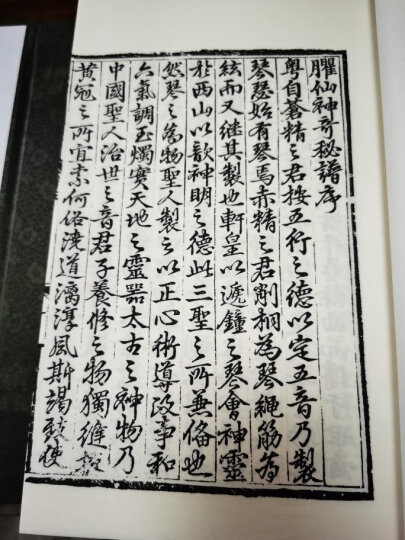 臞仙神奇秘譜序
粵自蒼精之君按五行之德以定五音乃製
琴瑟始有琴焉赤精之君削桐為琴繩絲為
絃而又继其製也軒皇以遞鐘之琴會神靈
於西山以歆神明之德此三聖之所兼俻也
然琴之為物聖人製之以正心術導政事和
六氣調玉燭實天地之靈器太古之神物乃
中國聖人治世之音君子養修之物獨縫掖
黃冠之所宜柰何俗澆道漓淳風斯竭致使